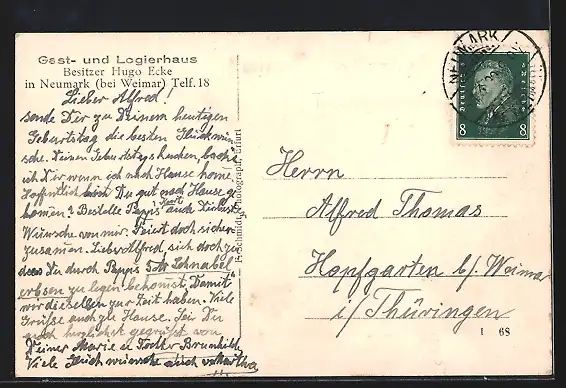 Gast- und Logierhaus
Besitzer Hugo Ecke
in Neumark (bei Weimar) Telf. 18
Lieber Alfred!
sende Dir zu Deinem heutigen
Geburtstag die besten Glückwün-
sche. Deinen Geburtstagskuchen, backe
ich Dir wenn ich nach Hause komme.
Hoffentlich bist Du gut nach Hause ge
kommen? Bestelle Pepps auch
Wünsche von mir. Feiert doch sicher
zusammen. Lieber Alfred, sieh doch zu
dass Du durch Pepps Schnabel
erbsen zu legen bekomst. Damit
wir dieselben zur Zeit haben. Viele
Grüße auch zu Hause. Sei Du
auch herzlichst gegrüßt von
Deiner Marie u. Tochter Brunhilde
Viele Glückwünsche auch
Photograph, Erfurt
NEUMARK
Deutsches Reich
8 8
Herrn
Alfred Thomas
Hopfgarten b/ Weimar
i/ Thüringen
1 68